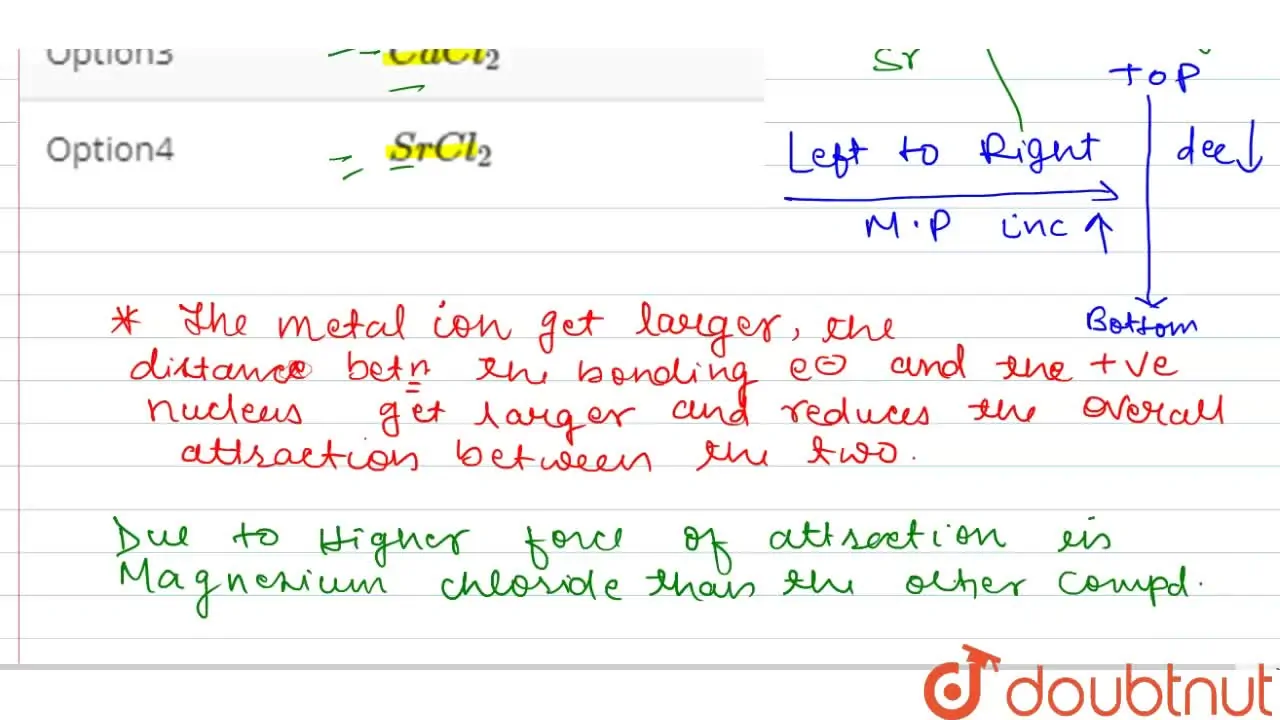 Option3
CaCl2
Sr
TOP
Option4
SrCl2
Left to Right
dec↓
M.P inc ↑
Bottom
* The metal ion get larger, the
distance betn the bonding e⊖ and the +ve
nucleus get larger and reduces the overall
attraction between the two.
Due to Higher force of attraction in
Magnesium chloride than the other compd.
doubtnut